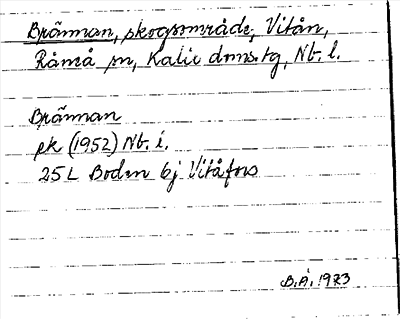 Brännan, skogsområde, Vitån,
Råneå sn, Kalix doms.tg, Nb. l.
Brännan
ek (1952) Nb. l.
25 L Boden bj Vitåfors
B.Å. 1973